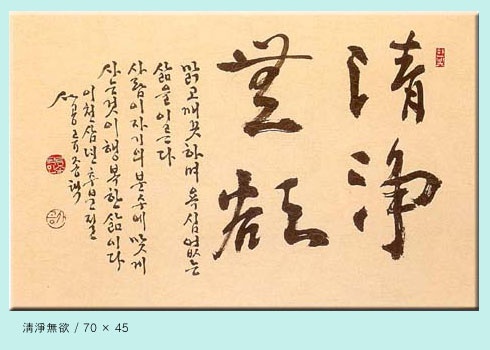 清淨
無欲
맑고 깨끗하며 욕심없는
삶을 이른다
사람이 자기의 분수에 맞게
사는것이 행복한 삶이다
이천삼년 후반절
清淨無欲 / 70 × 45